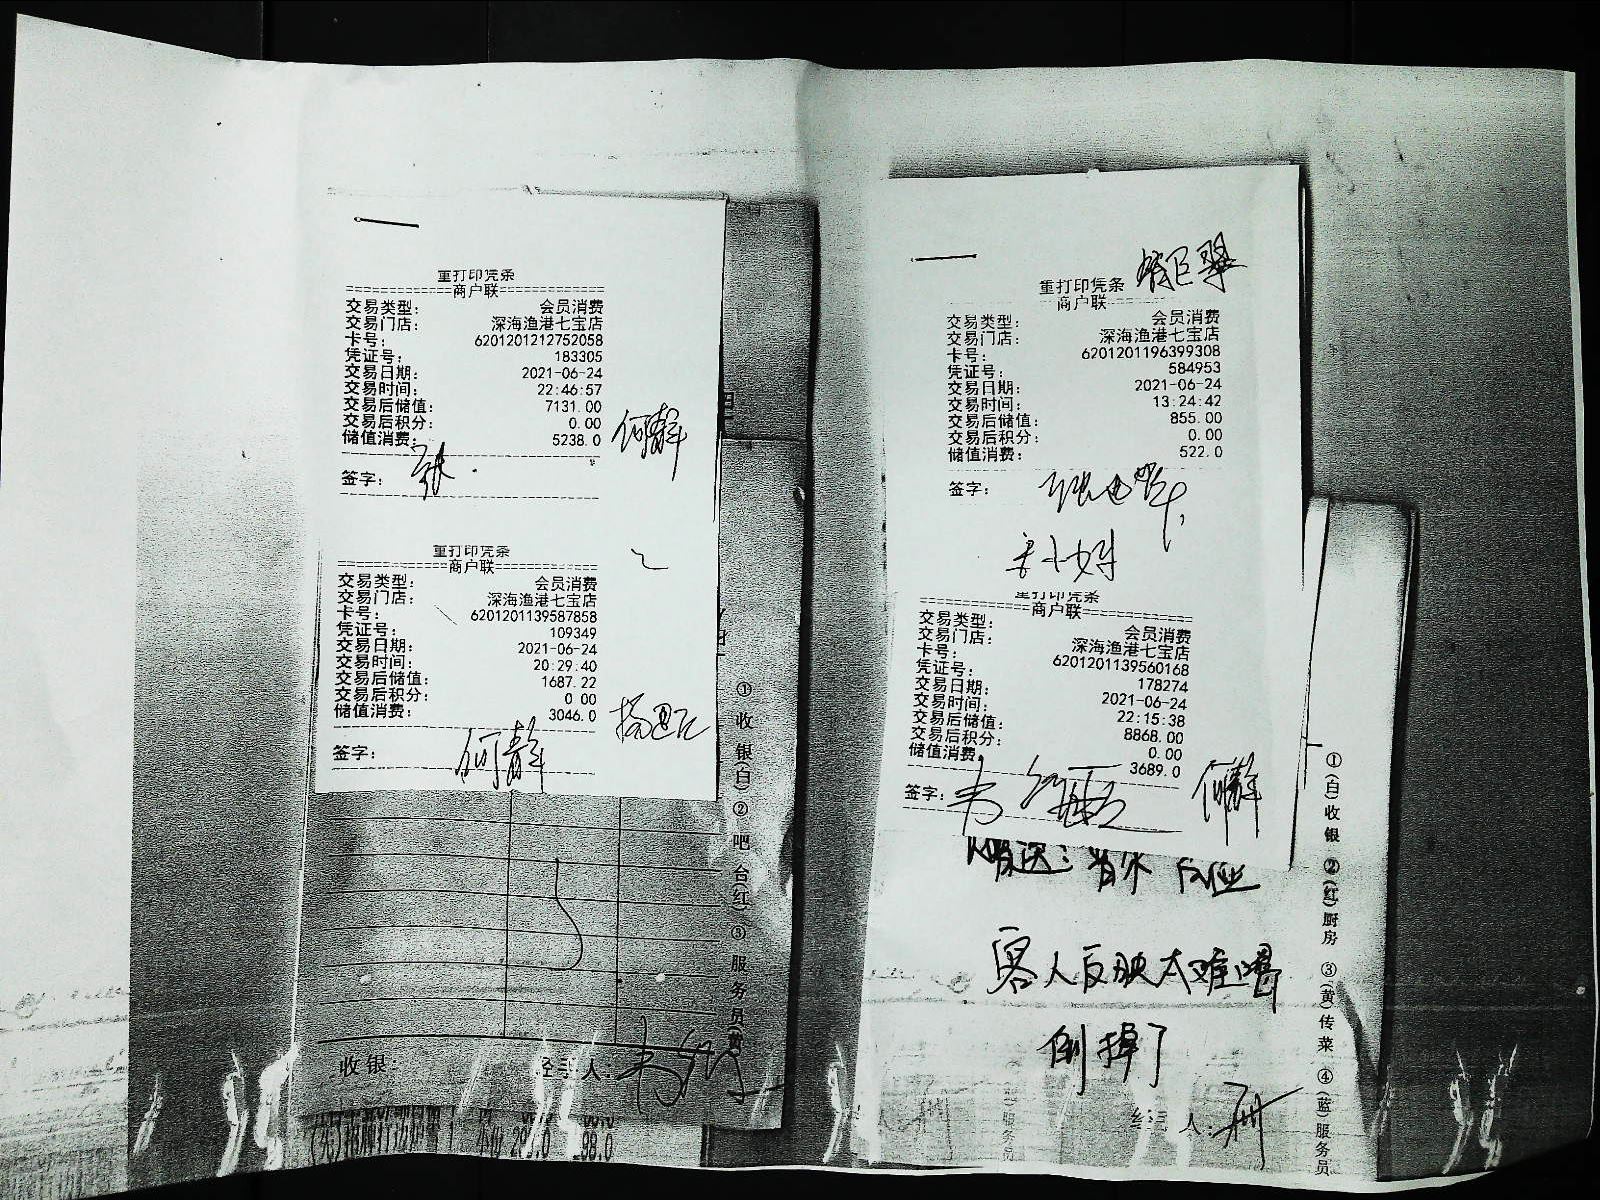 重打印凭条
商户联
交易类型: 会员消费
交易门店: 深海渔港七宝店
卡号: 6201201212752058
凭证号: 183305
交易日期: 2021-06-24
交易时间: 22:46:57
交易后储值: 7131.00
交易后积分: 0.00
储值消费: 5238.0
何静
签字: 张
重打印凭条
商户联
交易类型: 会员消费
交易门店: 深海渔港七宝店
卡号: 6201201139587858
凭证号: 109349
交易日期: 2021-06-24
交易时间: 20:29:40
交易后储值: 1687.22
交易后积分: 0 00
储值消费: 3046.0
签字: 何静
①收银(白)②吧台(红)③服务员(黄
收银:
经手人:
重打印凭条
商户联
交易类型: 会员消费
交易门店: 深海渔港七宝店
卡号: 6201201196399308
凭证号: 584953
交易日期: 2021-06-24
交易时间: 13:24:42
交易后储值: 855.00
交易后积分: 0.00
储值消费: 522.0
签字:
重打印凭条
商户联
交易类型: 会员消费
交易门店: 深海渔港七宝店
卡号: 6201201139560168
凭证号: 178274
交易日期: 2021-06-24
交易时间: 22:15:38
交易后储值: 8868.00
交易后积分: 0.00
储值消费: 3689.0
签字: 何静
客人反映太难喝
倒掉了
经手人:
①(白)收银 ②(红)厨房 ③(黄)传菜 ④(蓝)服务员